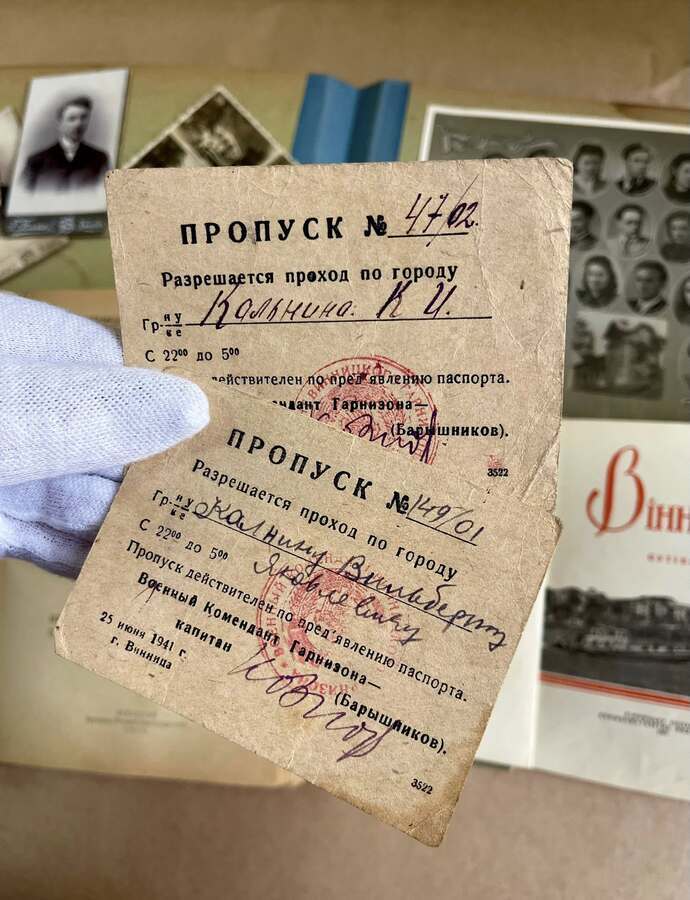 ПРОПУСК № 47/02.
Разрешается проход по городу
Гр-ну/ке Кальнина К И.
С 22⁰⁰ до 5⁰⁰
действителен по пред'явлению паспорта.
Комендант Гарнизона—
(Барышников).
3522
ПРОПУСК № 149/01
Разрешается проход по городу
Гр-ну/ке Калнину Вильберту
Яковлевичу
С 22⁰⁰ до 5⁰⁰
Пропуск действителен по пред'явлению паспорта.
Военный Комендант Гарнизона—
капитан
(Барышников).
25 июня 1941 г.
г. Винница
3522
Вінн